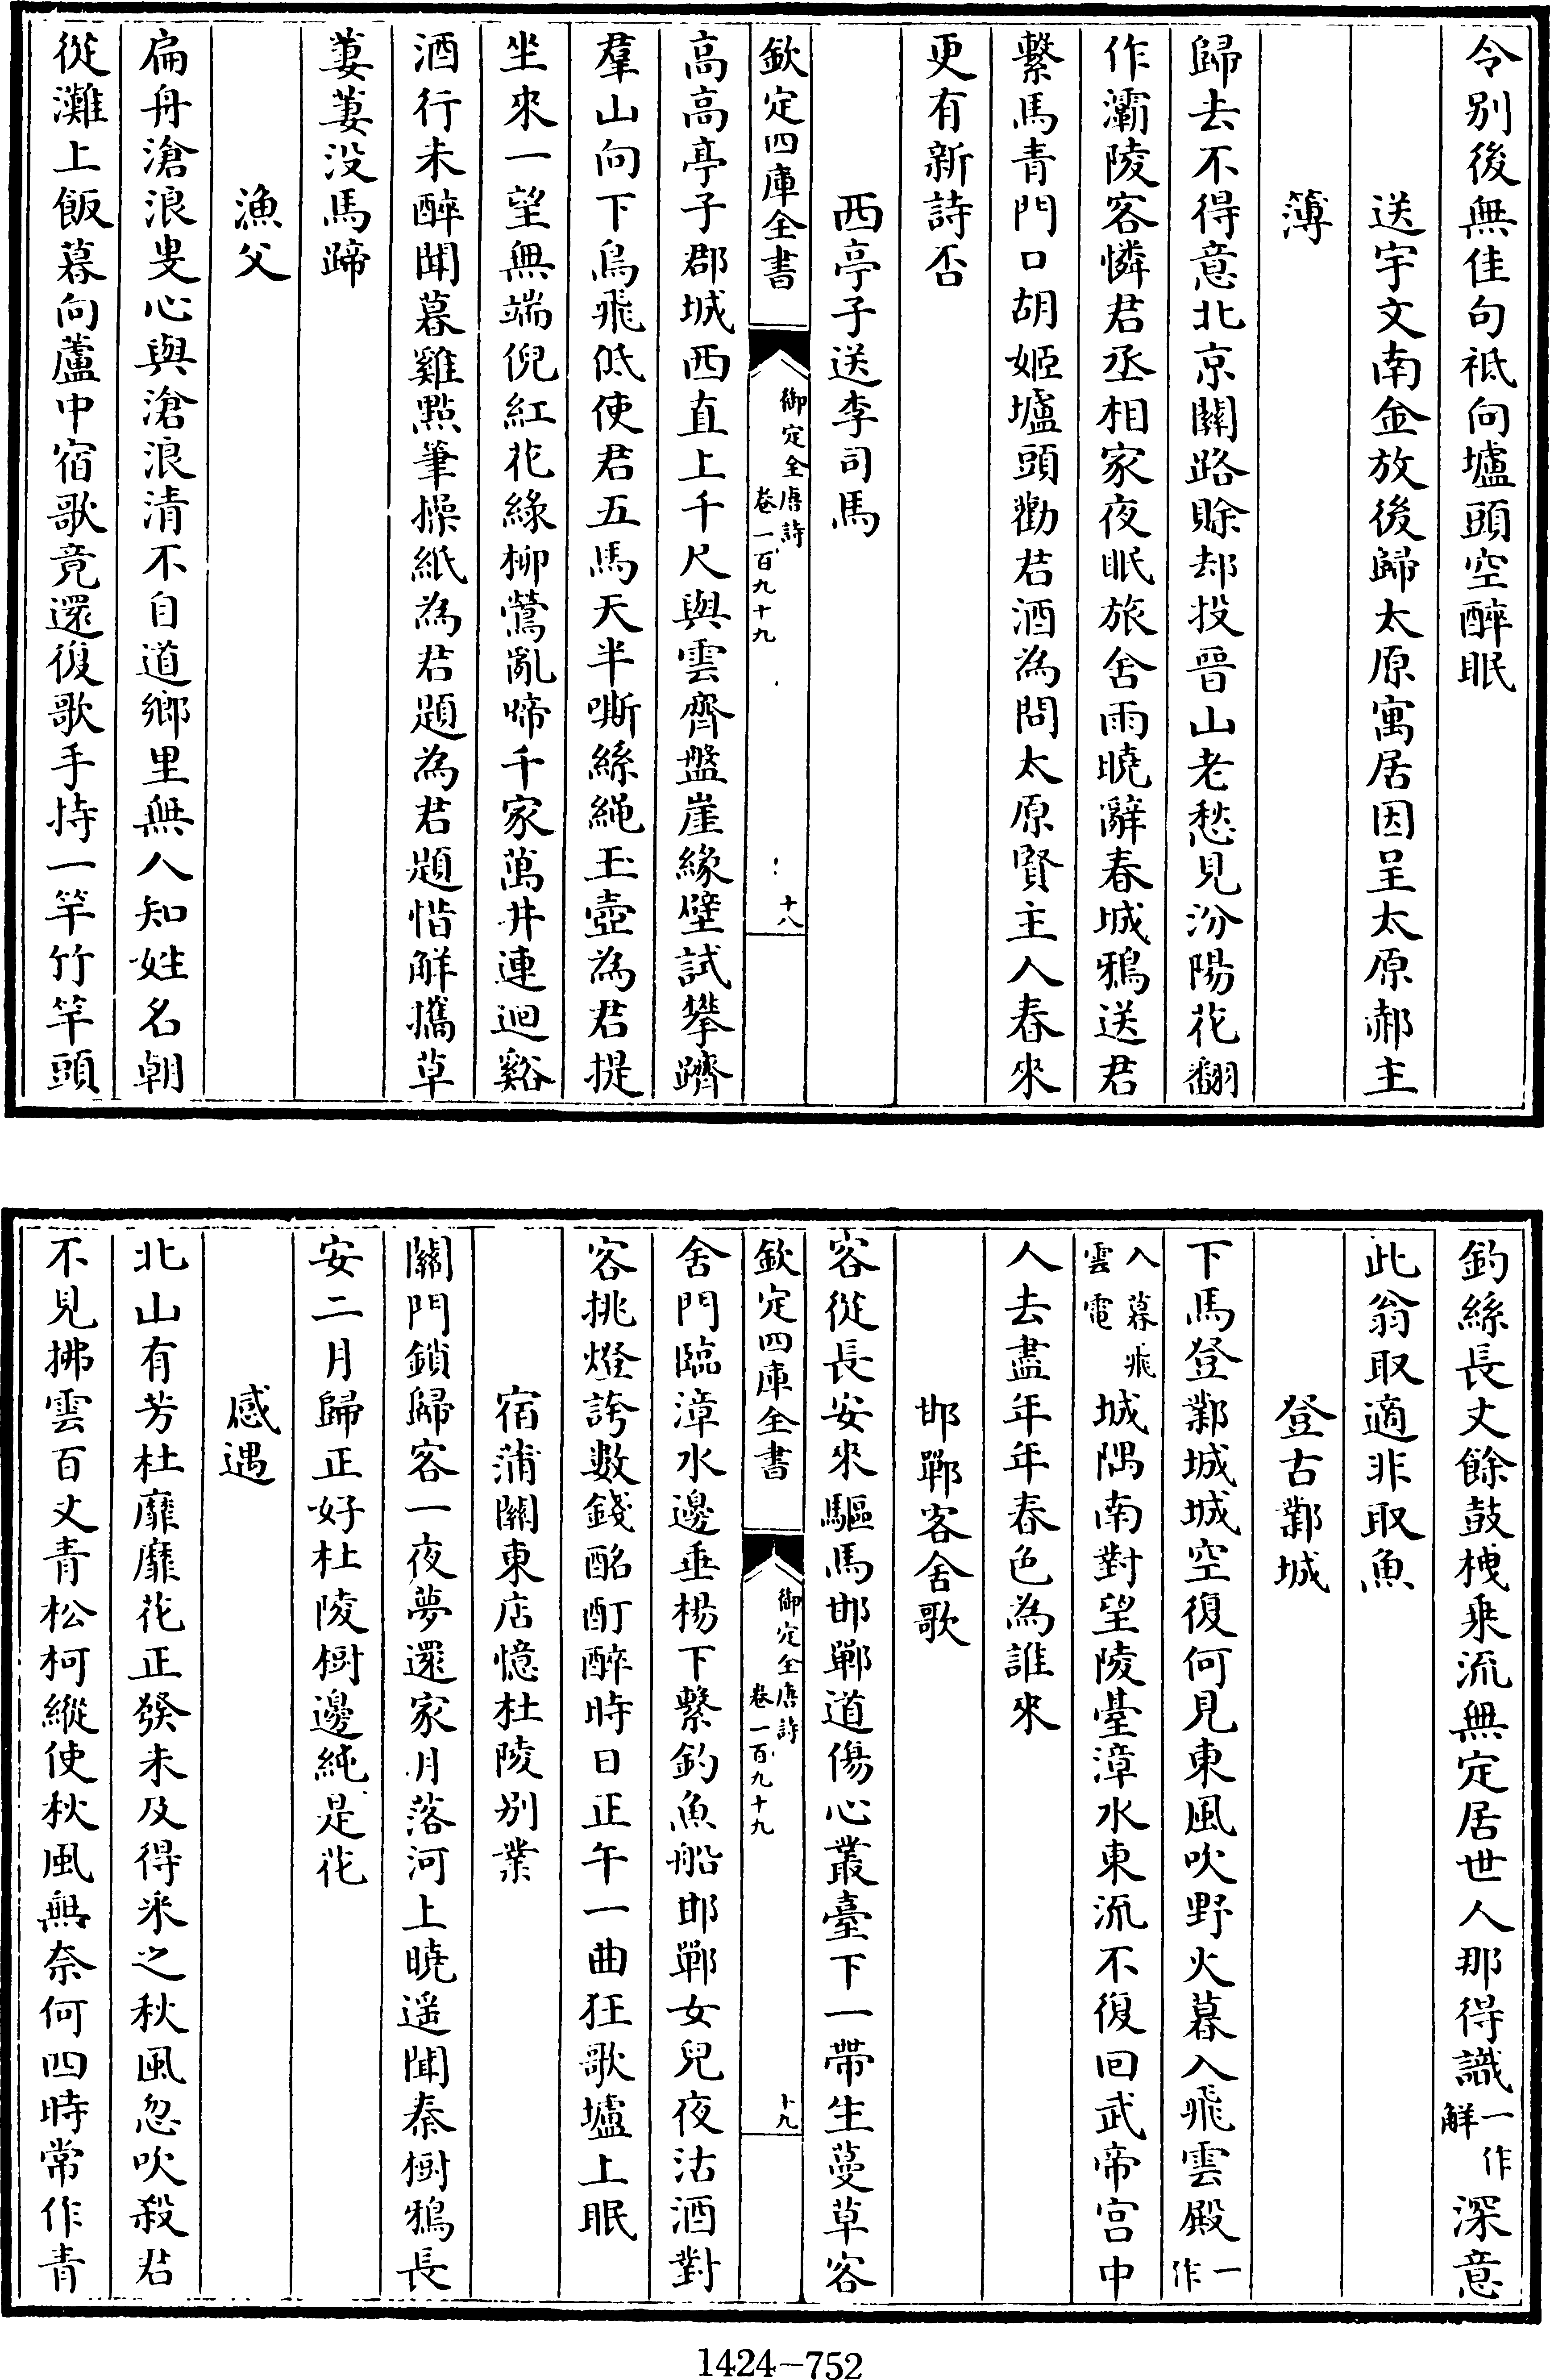 令别後無佳句祗向壚頭空醉眠
送宇文南金放後歸太原寓居因呈太原郝主
簿
歸去不得意北京關路賒却投晉山老愁見汾陽花翻
作灞陵客憐君丞相家夜眠旅舍雨曉辭春城鴉送君
繫馬青門口胡姬壚頭勸君酒為問太原賢主人春來
更有新詩否
西亭子送李司馬
欽定四庫全書
御定全唐詩
卷一百九十九
十八
高高亭子郡城西直上千尺與雲齊盤崖緣壁試攀躋
羣山向下烏飛低使君五馬天半嘶絲繩玉壺為君提
坐來一望無端倪紅花綠柳鶯亂啼千家萬井連迴谿
酒行未醉聞暮雞點筆操紙為君題為君題惜解攜草
萋萋没馬蹄
漁父
扁舟滄浪叟心與滄浪清不自道鄉里無人知姓名朝
從灘上飯暮向蘆中宿歌竟還復歌手持一竿竹竿頭
釣絲長丈餘鼓枻乗流無定居世人那得識一作解深意
此翁取適非取魚
登古鄴城
下馬登鄴城城空復何見東風吹野火暮入飛雲殿一作
入暮飛雲電城隅南對望陵臺漳水東流不復回武帝宫中
人去盡年年春色為誰來
邯鄲客舍歌
客從長安來驅馬邯鄲道傷心叢臺下一帶生蔓草客
欽定四庫全書
御定全唐詩
卷一百九十九
十九
舍門臨漳水邊垂楊下繫釣魚船邯鄲女兒夜沽酒對
客挑燈誇數錢酩酊醉時日正午一曲狂歌壚上眠
宿蒲關東店憶杜陵别業
關門鎖歸客一夜夢還家月落河上曉遥聞秦樹鴉長
安二月歸正好杜陵樹邊純是花
感遇
北山有芳杜靡靡花正發未及得采之秋風忽吹殺君
不見拂雲百丈青松柯縱使秋風無奈何四時常作青
1424-752